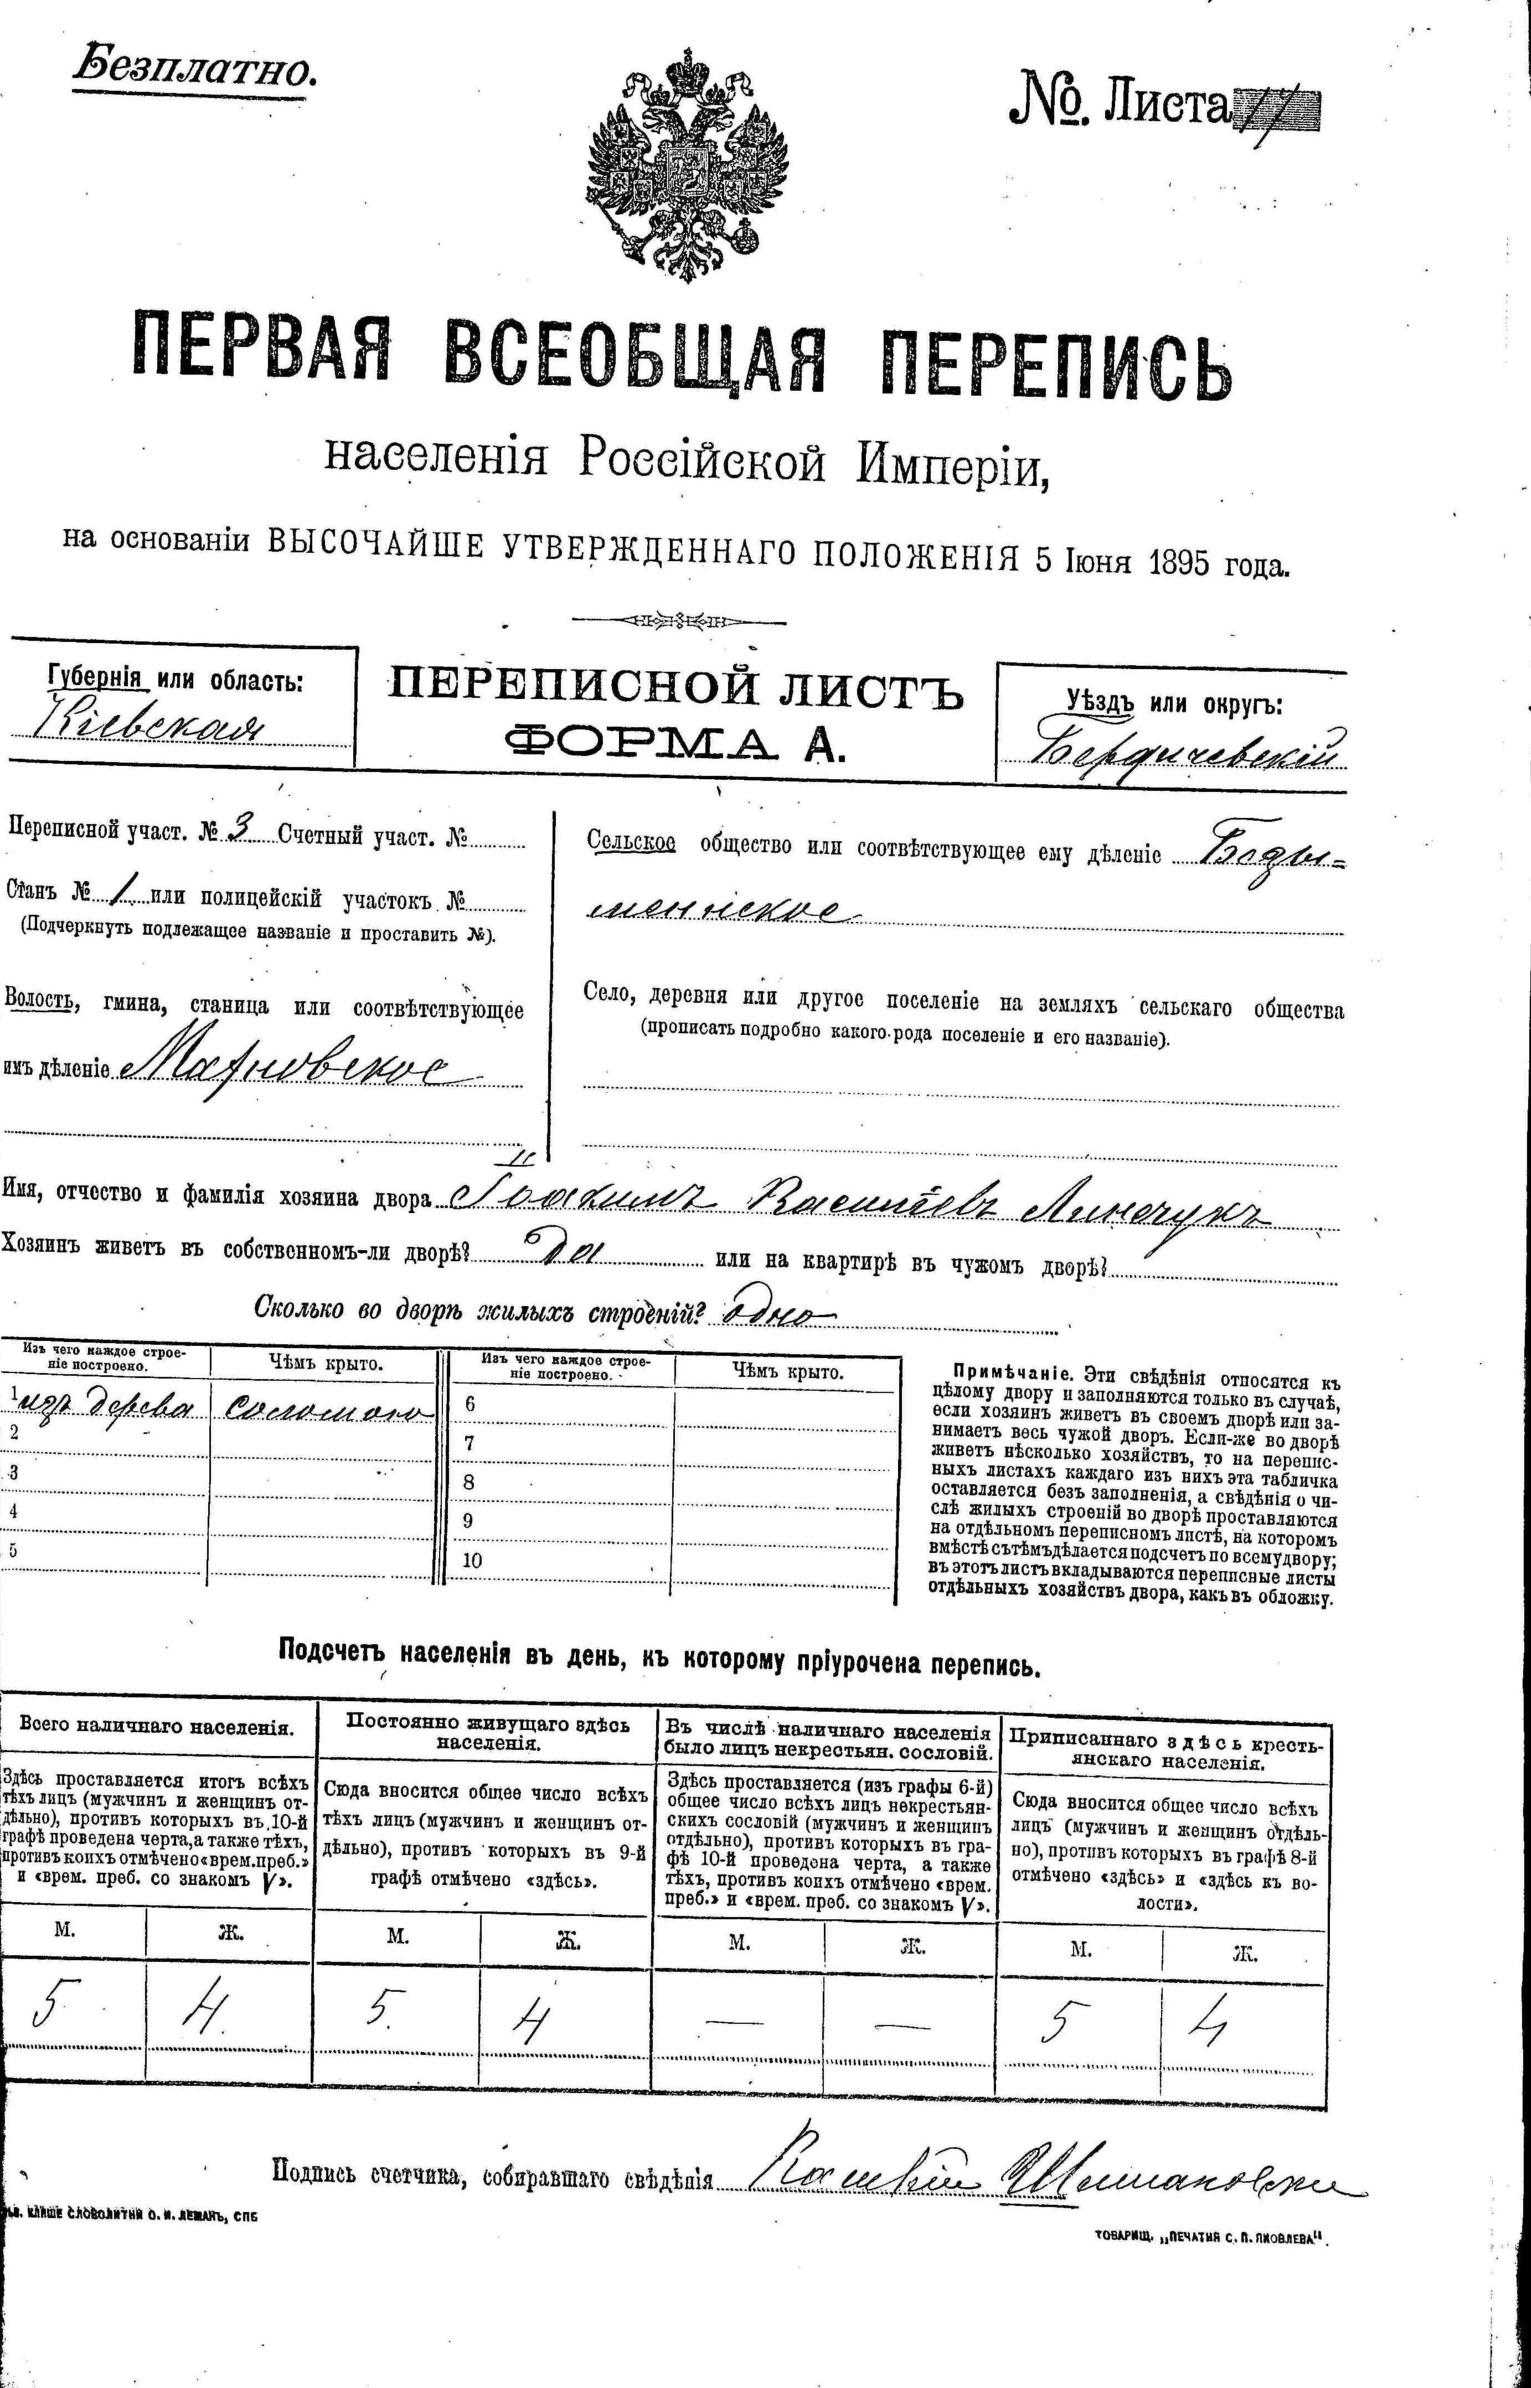 Безплатно.
№. Листа 17
ПЕРВАЯ ВСЕОБЩАЯ ПЕРЕПИСЬ
населенія Россійской Имперіи,
на основаніи ВЫСОЧАЙШЕ УТВЕРЖДЕННАГО ПОЛОЖЕНІЯ 5 Іюня 1895 года.
Губернія или область:
Кіевская
ПЕРЕПИСНОЙ ЛИСТЪ
ФОРМА А.
Уѣздъ или округъ:
Бердичевскій
Переписной участ. № 3 Счетный участ. №
Станъ № 1 или полицейскій участокъ №
(Подчеркнуть подлежащее названіе и проставить №).
Волость, гмина, станица или соотвѣтствующее
имъ дѣленіе Махновское
Сельское общество или соотвѣтствующее ему дѣленіе Беды=
менское
Село, деревня или другое поселеніе на земляхъ сельскаго общества
(прописать подробно какого рода поселеніе и его названіе).
Имя, отчество и фамилія хозяина двора Іоакимъ Васильевъ Линчукъ
Хозяинъ живетъ въ собственномъ-ли дворѣ? Да или на квартирѣ въ чужомъ дворѣ?
Сколько во дворѣ жилыхъ строеній? одно
Изъ чего каждое строе-
ніе построено.
Чѣмъ крыто.
Изъ чего каждое строе-
ніе построено.
Чѣмъ крыто.
1 изъ дерева соломою 6
2 7
3 8
4 9
5 10
Примѣчаніе. Эти свѣдѣнія относятся къ
цѣлому двору и заполняются только въ случаѣ,
если хозяинъ живетъ въ своемъ дворѣ или за-
нимаетъ весь чужой дворъ. Если-же во дворѣ
живетъ нѣсколько хозяйствъ, то на перепис-
ныхъ листахъ каждаго изъ нихъ эта табличка
оставляется безъ заполненія, а свѣдѣнія о чи-
слѣ жилыхъ строеній во дворѣ проставляются
на отдѣльномъ переписномъ листѣ, на которомъ
вмѣстѣ съ тѣмъ дѣлается подсчетъ по всему двору;
въ этотъ листъ вкладываются переписные листы
отдѣльныхъ хозяйствъ двора, какъ въ обложку.
Подсчетъ населенія въ день, къ которому пріурочена перепись.
Всего наличнаго населенія.
Здѣсь проставляется итогъ всѣхъ
тѣхъ лицъ (мужчинъ и женщинъ от-
дѣльно), противъ которыхъ въ 10-й
графѣ проведена черта, а также тѣхъ,
противъ коихъ отмѣчено «врем. преб.»
и «врем. преб. со знакомъ V».
Постоянно живущаго здѣсь
населенія.
Сюда вносится общее число всѣхъ
тѣхъ лицъ (мужчинъ и женщинъ от-
дѣльно), противъ которыхъ въ 9-й
графѣ отмѣчено «здѣсь».
Въ числѣ наличнаго населенія
было лицъ некрестьян. сословій.
Здѣсь проставляется (изъ графы 6-й)
общее число всѣхъ лицъ некрестьян-
скихъ сословій (мужчинъ и женщинъ
отдѣльно), противъ которыхъ въ гра-
фѣ 10-й проведена черта, а также
тѣхъ, противъ коихъ отмѣчено «врем.
преб.» и «врем. преб. со знакомъ V».
Приписаннаго здѣсь кресть-
янскаго населенія.
Сюда вносится общее число всѣхъ
лицъ (мужчинъ и женщинъ отдѣль-
но), противъ которыхъ въ графѣ 8-й
отмѣчено «здѣсь» и «здѣсь къ во-
лости».
М. Ж. М. Ж. М. Ж. М. Ж.
5 4 5. 4 — — 5 4
Подпись счетчика, собиравшаго свѣдѣнія
КЛИШЕ СЛОВОЛИТНИ О. И. ЛЕМАНЪ, СПБ
ТОВАРИЩ. „ПЕЧАТНЯ С. П. ЯКОВЛЕВА".